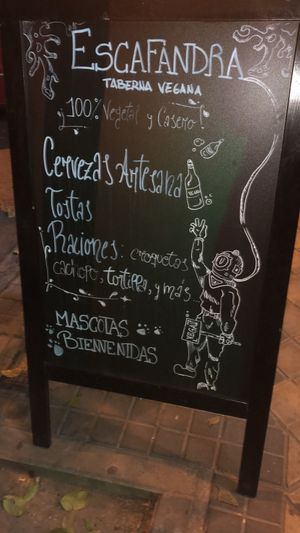 ESCAFANDRA
TABERNA VEGANA
¡100% Vegetal y Casero!
Cervezas Artesana
Tostas
Raciones: croquetas,
cachopo, tortilla, y más...
MASCOTAS
BIENVENIDAS